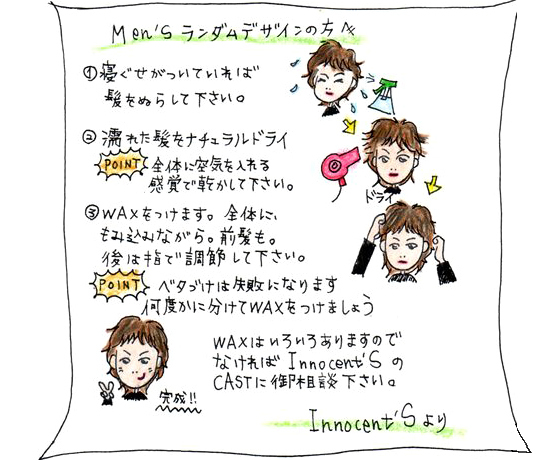 Men'S ランダムデザインの方へ
① 寝ぐせがついていれば
髪をぬらして下さい。
② 濡れた髪をナチュラルドライ
POINT 全体に空気を入れる
感覚で乾かして下さい。
ドライ
③ WAXをつけます。全体に、
もみ込みながら。前髪も。
後は指で調節して下さい。
POINT ベタづけは失敗になります
何度かに分けてWAXをつけましょう
完成!!
WAXはいろいろありますので
なければ Innocent'S の
CASTに御相談下さい。
Innocent'S より